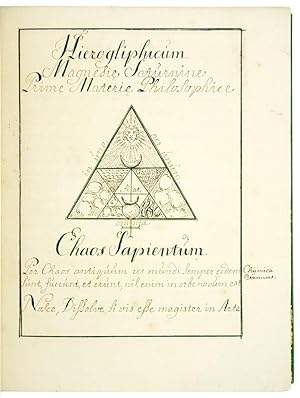 Hierogliphicum
Magnesie Saturnine
Prime Materie Philosophice
Chaos Sapientum.
Per Chaos antiquum res mundi semper eedem
sunt, fuerunt, et erunt, nil enim in orbe novum est
Nosce, Dissolve si vis esse magister in Arte
Chymica